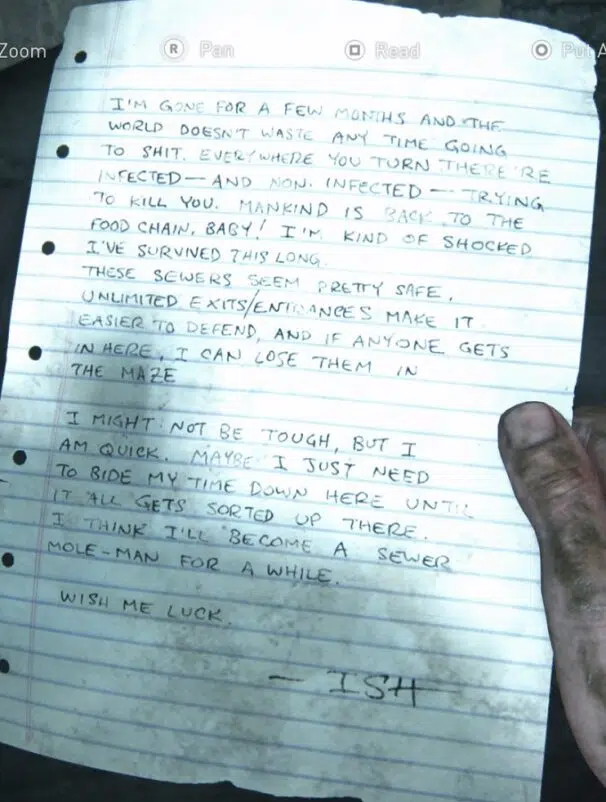 Zoom
R Pan
Read
O Put A
I'M GONE FOR A FEW MONTHS AND THE
WORLD DOESN'T WASTE ANY TIME GOING
TO SHIT. EVERYWHERE YOU TURN THERE'RE
INFECTED — AND NON. INFECTED — TRYING
TO KILL YOU. MANKIND IS BACK TO THE
FOOD CHAIN, BABY! I'M KIND OF SHOCKED
I'VE SURVIVED THIS LONG.
THESE SEWERS SEEM PRETTY SAFE.
UNLIMITED EXITS/ENTRANCES MAKE IT
EASIER TO DEFEND, AND IF ANYONE GETS
IN HERE, I CAN LOSE THEM IN
THE MAZE
I MIGHT NOT BE TOUGH, BUT I
AM QUICK. MAYBE I JUST NEED
TO BIDE MY TIME DOWN HERE UNTIL
IT ALL GETS SORTED UP THERE.
I THINK I'LL BECOME A SEWER
MOLE-MAN FOR A WHILE.
WISH ME LUCK.
— ISH